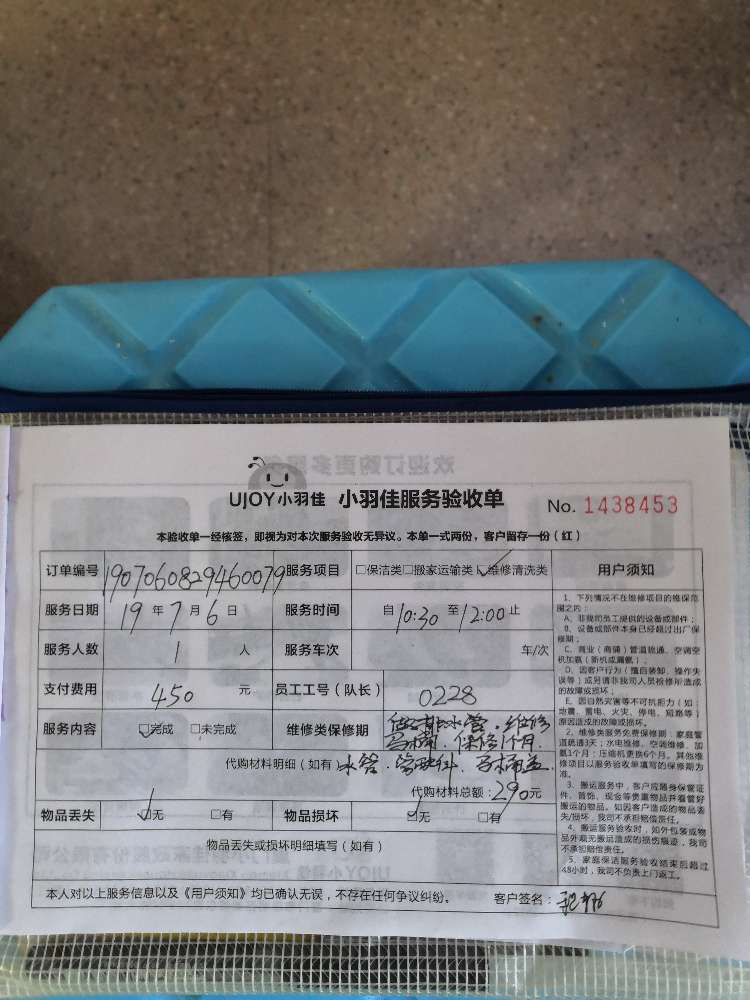 欢迎订购更多服
UJOY小羽佳 小羽佳服务验收单 No. 1438453
本验收单一经核签，即视为对本次服务验收无异议。本单一式两份，客户留存一份（红）
订单编号 1907060829460079 服务项目 □保洁类□搬家运输类☑维修清洗类
服务日期 19年7月6日 服务时间 自10:30至12:00止
服务人数 1人 服务车次 车/次
支付费用 450元 员工工号（队长） 0228
服务内容 ☑完成 □未完成 维修类保修期 水管.维修
马桶.保修1个月.
代购材料明细（如有）水管.管 马桶盖
代购材料总额：290元
物品丢失 ☑无 □有 物品损坏 ☑无 □有
物品丢失或损坏明细填写（如有）
本人对以上服务信息以及《用户须知》均已确认无误，不存在任何争议纠纷。 客户签名：
用户须知
1、下列情况不在维修项目的维保范
围之内：
A、非我司员工提供的设备或部件；
B、设备或部件本身已经超过出厂保
修期；
C、商业（商铺）管道疏通、空调空
机加氨（新机或漏氨）；
D、因客户行为（擅自装卸、操作失
误等）或另请非我司人员检修所造成
的故障或损坏；
E、因自然灾害等不可抗拒力（如：
地震、雷电、火灾、停电、短路等）
原因造成的故障或损坏。
2、维修类服务免费保修期：家庭管
道疏通3天；水电维修、空调维修、加
氨1个月；压缩机更换6个月。其他维
修项目以服务验收单填写的保修期为
准。
3、搬运服务中，客户应随身保管证
件、首饰、现金等贵重物品并看管好
搬运的物品。如因客户造成的物品丢
失/损坏，我司不承担赔偿责任。
4、搬运服务验收时，如外包装或物
品外观无搬运造成的损伤痕迹，我司
不承担赔偿责任。
5、家庭保洁服务验收结束后超过
48小时，我司不负责上门返工。